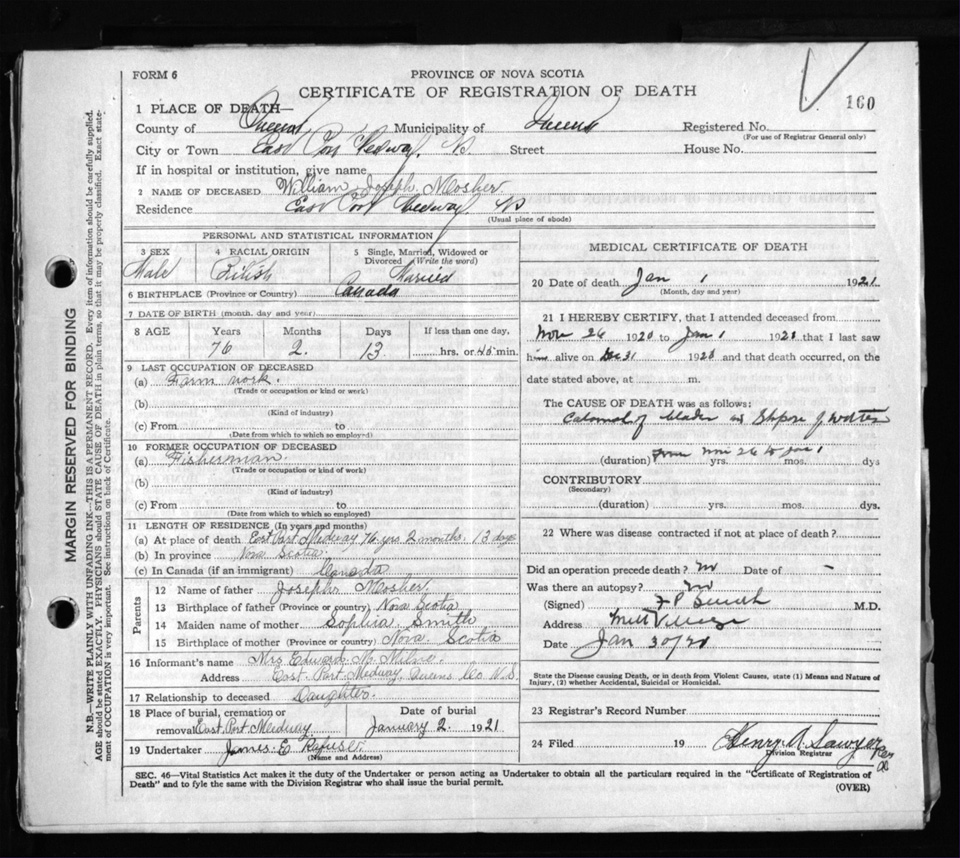 FORM 6
PROVINCE OF NOVA SCOTIA
CERTIFICATE OF REGISTRATION OF DEATH
160
1 PLACE OF DEATH—
County of Queens Municipality of Queens Registered No.
(For use of Registrar General only)
City or Town East Port Medway Street House No.
If in hospital or institution, give name
2 NAME OF DECEASED William Joseph Mosher
Residence East Port Medway
(Usual place of abode)
PERSONAL AND STATISTICAL INFORMATION
3 SEX 4 RACIAL ORIGIN 5 Single, Married, Widowed or Divorced (Write the word)
Male Married
6 BIRTHPLACE (Province or Country) Canada
7 DATE OF BIRTH (month, day and year)
8 AGE Years Months Days If less than one day,
76 2 13 hrs. or min.
9 LAST OCCUPATION OF DECEASED
(a) Farm work.
(Trade or occupation or kind or work)
(b)
(Kind of industry)
(c) From
(Date from which to which so employed)
10 FORMER OCCUPATION OF DECEASED
(a) Fisherman.
(Trade or occupation or kind of work)
(b)
(Kind of industry)
(c) From
(Date from which to which so employed)
11 LENGTH OF RESIDENCE (In years and months)
(a) At place of death East Port Medway 76 yrs 2 months. 13 days
(b) In province Nova Scotia.
(c) In Canada (if an immigrant) Canada
Parents
12 Name of father Joseph Mosher
13 Birthplace of father (Province or country) Nova Scotia
14 Maiden name of mother Sophia Smith
15 Birthplace of mother (Province or country) Nova Scotia
16 Informant's name Mrs Edward M.
Address East Port Medway, Queens Co N.S.
17 Relationship to deceased Daughter.
18 Place of burial, cremation or removal East Port Medway Date of burial January 2 1921
19 Undertaker James E.
(Name and Address)
MEDICAL CERTIFICATE OF DEATH
20 Date of death Jan 1 1921
(Month, day and year)
21 I HEREBY CERTIFY, that I attended deceased from
Nov 26 1920 to Jan 1 192 that I last saw
him alive on Dec 31 1920 and that death occurred, on the
date stated above, at m.
The CAUSE OF DEATH was as follows:
of
(duration) from Nov 26 to Jan 1 yrs. mos. dys
CONTRIBUTORY
(Secondary)
(duration) yrs. mos. dys.
22 Where was disease contracted if not at place of death?
Did an operation precede death? no Date of –
Was there an autopsy? no
(Signed) Smith M.D.
Address Mill Village
Date Jan 30/21
State the Disease causing Death, or in death from Violent Causes, state (1) Means and Nature of
Injury, (2) whether Accidental, Suicidal or Homicidal.
23 Registrar's Record Number
24 Filed 19 Henry A. Sawyer
Division Registrar
SEC. 46—Vital Statistics Act makes it the duty of the Undertaker or person acting as Undertaker to obtain all the particulars required in the "Certificate of Registration of
Death" and to fyle the same with the Division Registrar who shall issue the burial permit.
(OVER)
MARGIN RESERVED FOR BINDING
N.B.—WRITE PLAINLY WITH UNFADING INK—THIS IS A PERMANENT RECORD. Every item of information should be carefully supplied.
AGE should be stated EXACTLY. PHYSICIANS should STATE CAUSE OF DEATH in plain terms, so that it may be properly classified. Exact state-
ment of OCCUPATION is very important. See instructions on back of Certificate.